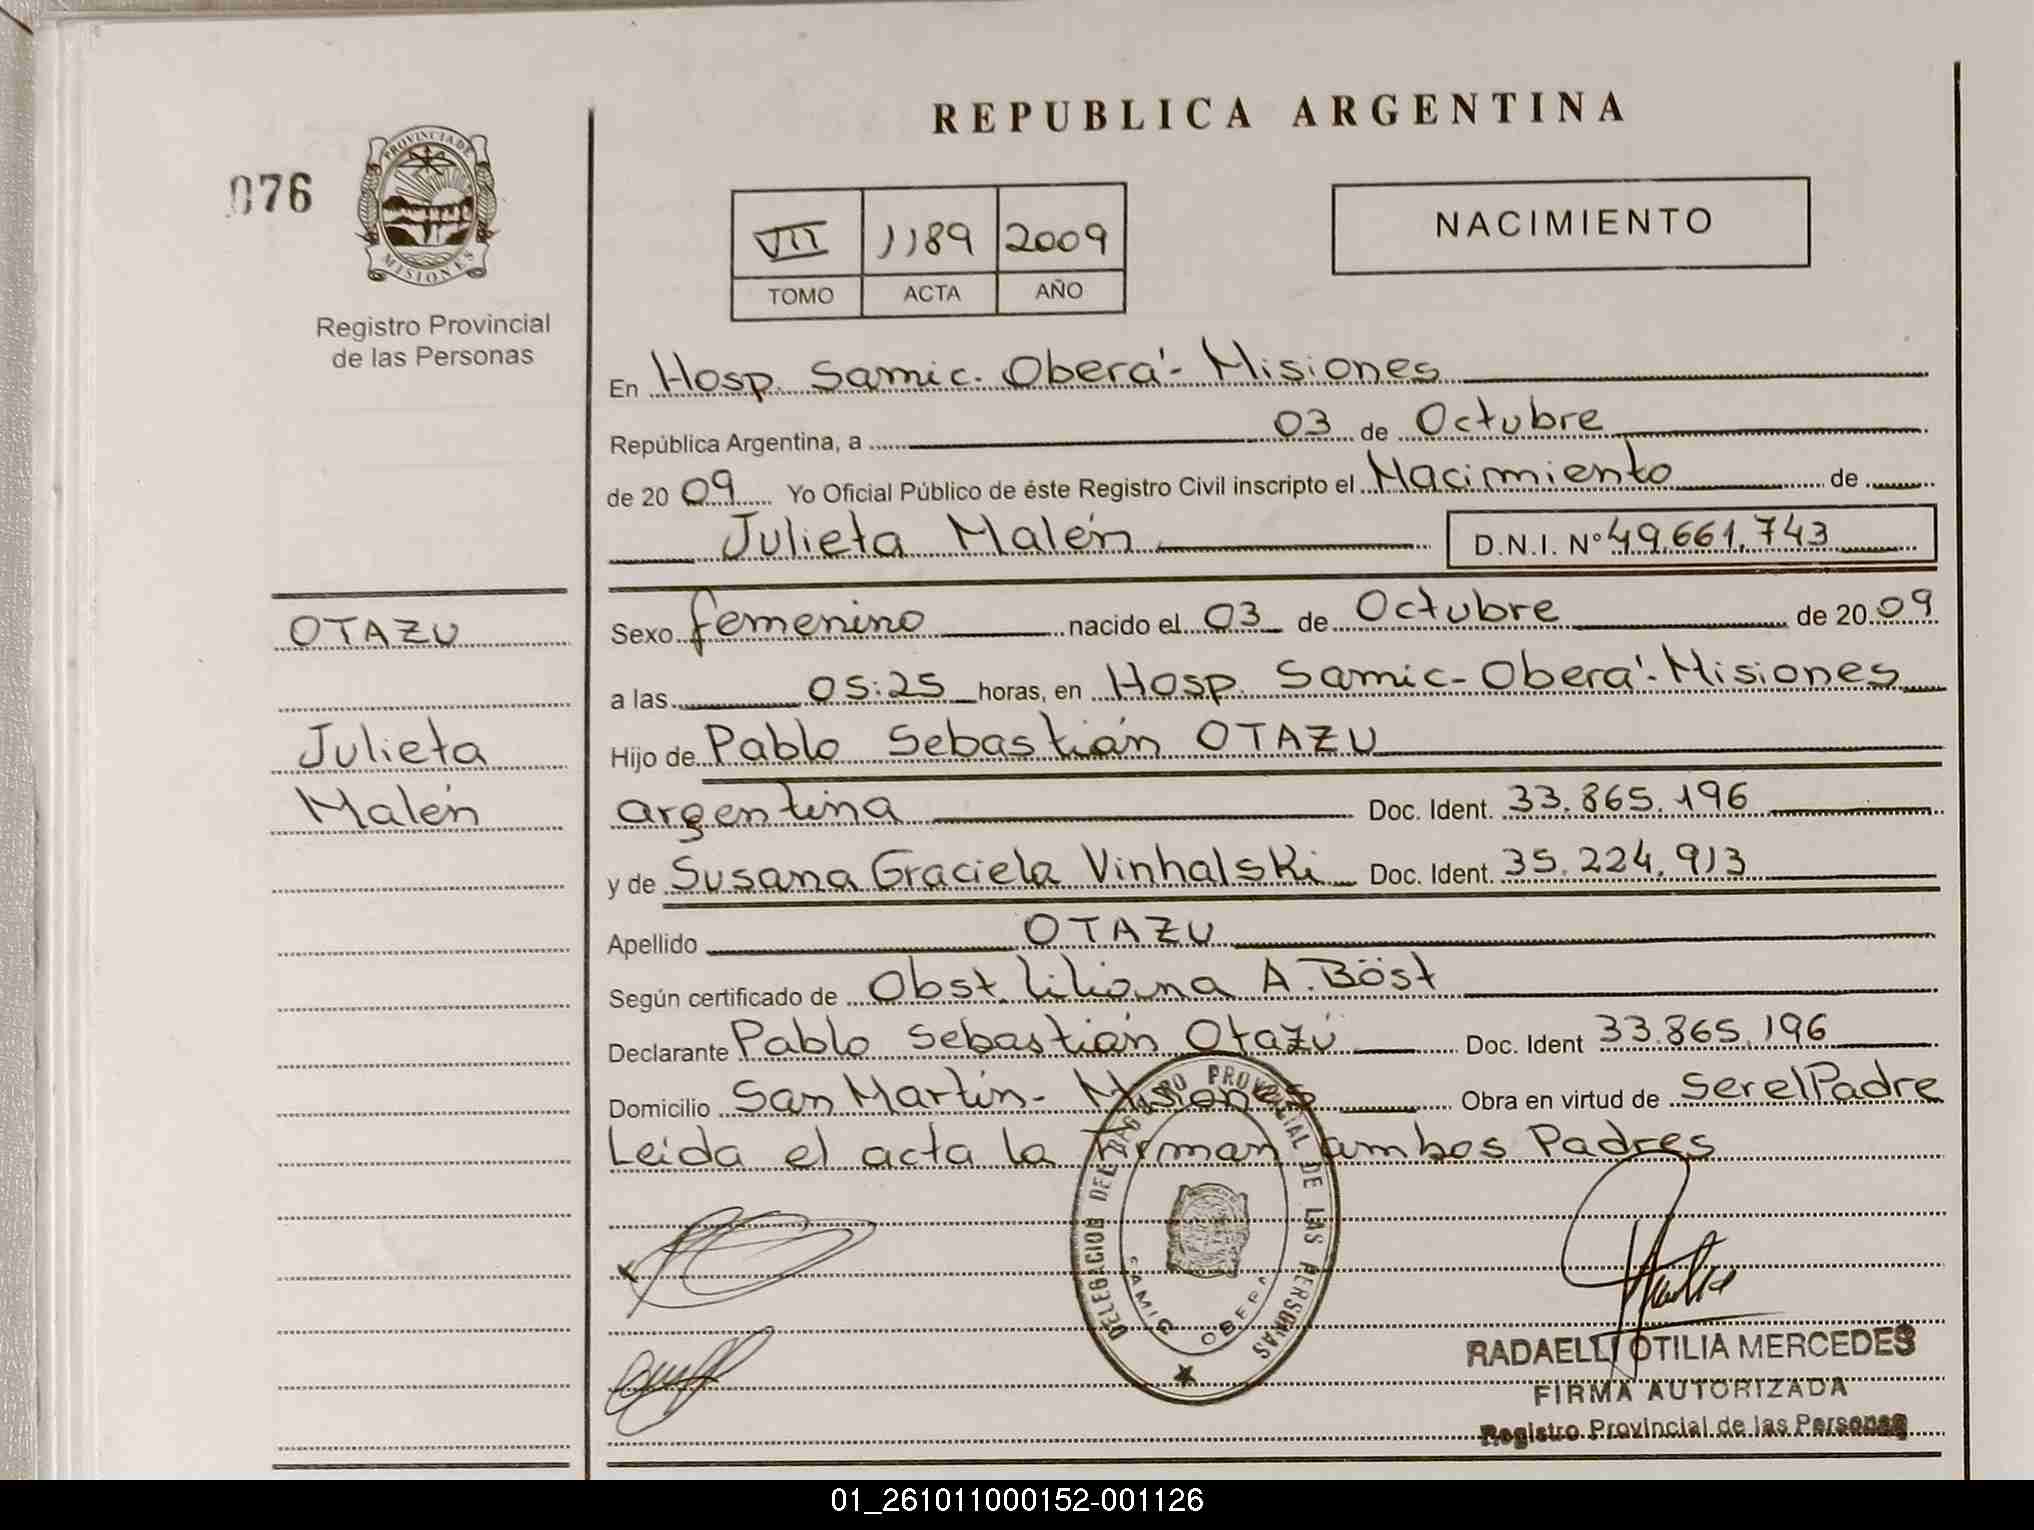 REPUBLICA ARGENTINA
076
PROVINCIA DE
MISIONES
Registro Provincial
de las Personas
VII 1189 2009
TOMO ACTA AÑO
NACIMIENTO
En Hosp. Samic. Oberá - Misiones
República Argentina, a 03 de Octubre
de 2009 Yo Oficial Público de éste Registro Civil inscripto el Nacimiento de
Julieta Malén D.N.I. Nº 49.661.743
OTAZU
Julieta
Malén
Sexo femenino nacido el 03 de Octubre de 2009
a las 05:25 horas, en Hosp. Samic - Oberá - Misiones
Hijo de Pablo Sebastián OTAZU
argentina Doc. Ident. 33.865.196
y de Susana Graciela Vinhalski Doc. Ident. 35.224.913
Apellido OTAZU
Según certificado de Obst. Liliana A. Böst
Declarante Pablo Sebastián Otazú Doc. Ident 33.865.196
Domicilio San Martín - Misiones Obra en virtud de Ser el Padre
Leida el acta la firman ambos Padres
DELEGACION DEL REGISTRO PROVINCIAL DE LAS PERSONAS
SAMIC OBERA
RADAELLI OTILIA MERCEDES
FIRMA AUTORIZADA
Registro Provincial de las Personas
01_261011000152-001126